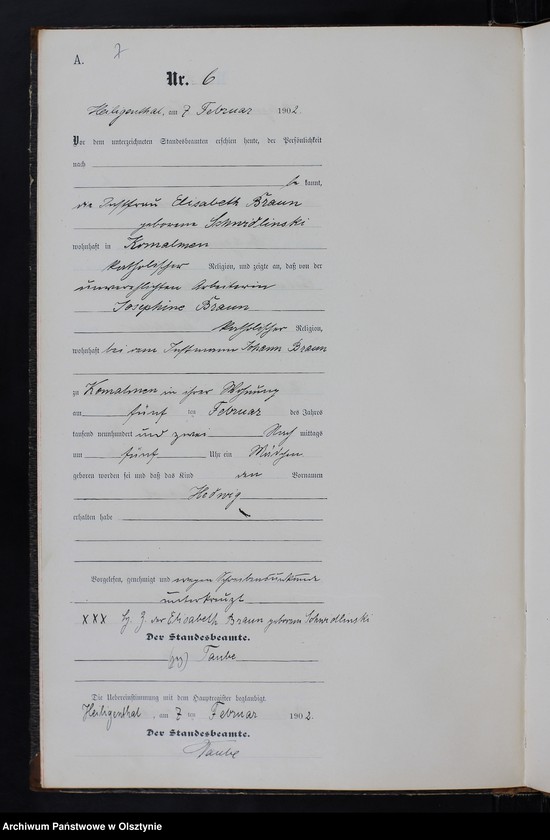 A. 7
Nr. 6
Heiligenthal, am 7 Februar 1902.
Vor dem unterzeichneten Standesbeamten erschien heute, der Persönlichkeit
nach
be kannt,
die Instfrau Elisabeth Braun
geborene Schwedlinski
wohnhaft in Komalmen
katholischer Religion, und zeigte an, daß von der
unverehelichten Arbeiterin
Josephine Braun
katholischer Religion,
wohnhaft bei dem Instmann Johann Braun
zu Komalmen in ihrer Wohnung
am fünf ten Februar des Jahres
tausend neunhundert und zwei Nach mittags
um fünf Uhr ein Mädchen
geboren worden sei und daß das Kind den Vornamen
Hedwig
erhalten habe
Vorgelesen, genehmigt und wegen Schreibensunkunde
unterkreuzt
XXX H. Z. der Elisabeth Braun geborene Schwedlinski
Der Standesbeamte.
(gez) Taube
Die Uebereinstimmung mit dem Hauptregister beglaubigt
Heiligenthal, am 7 ten Februar 1902.
Der Standesbeamte.
Taube
Archiwum Państwowe w Olsztynie